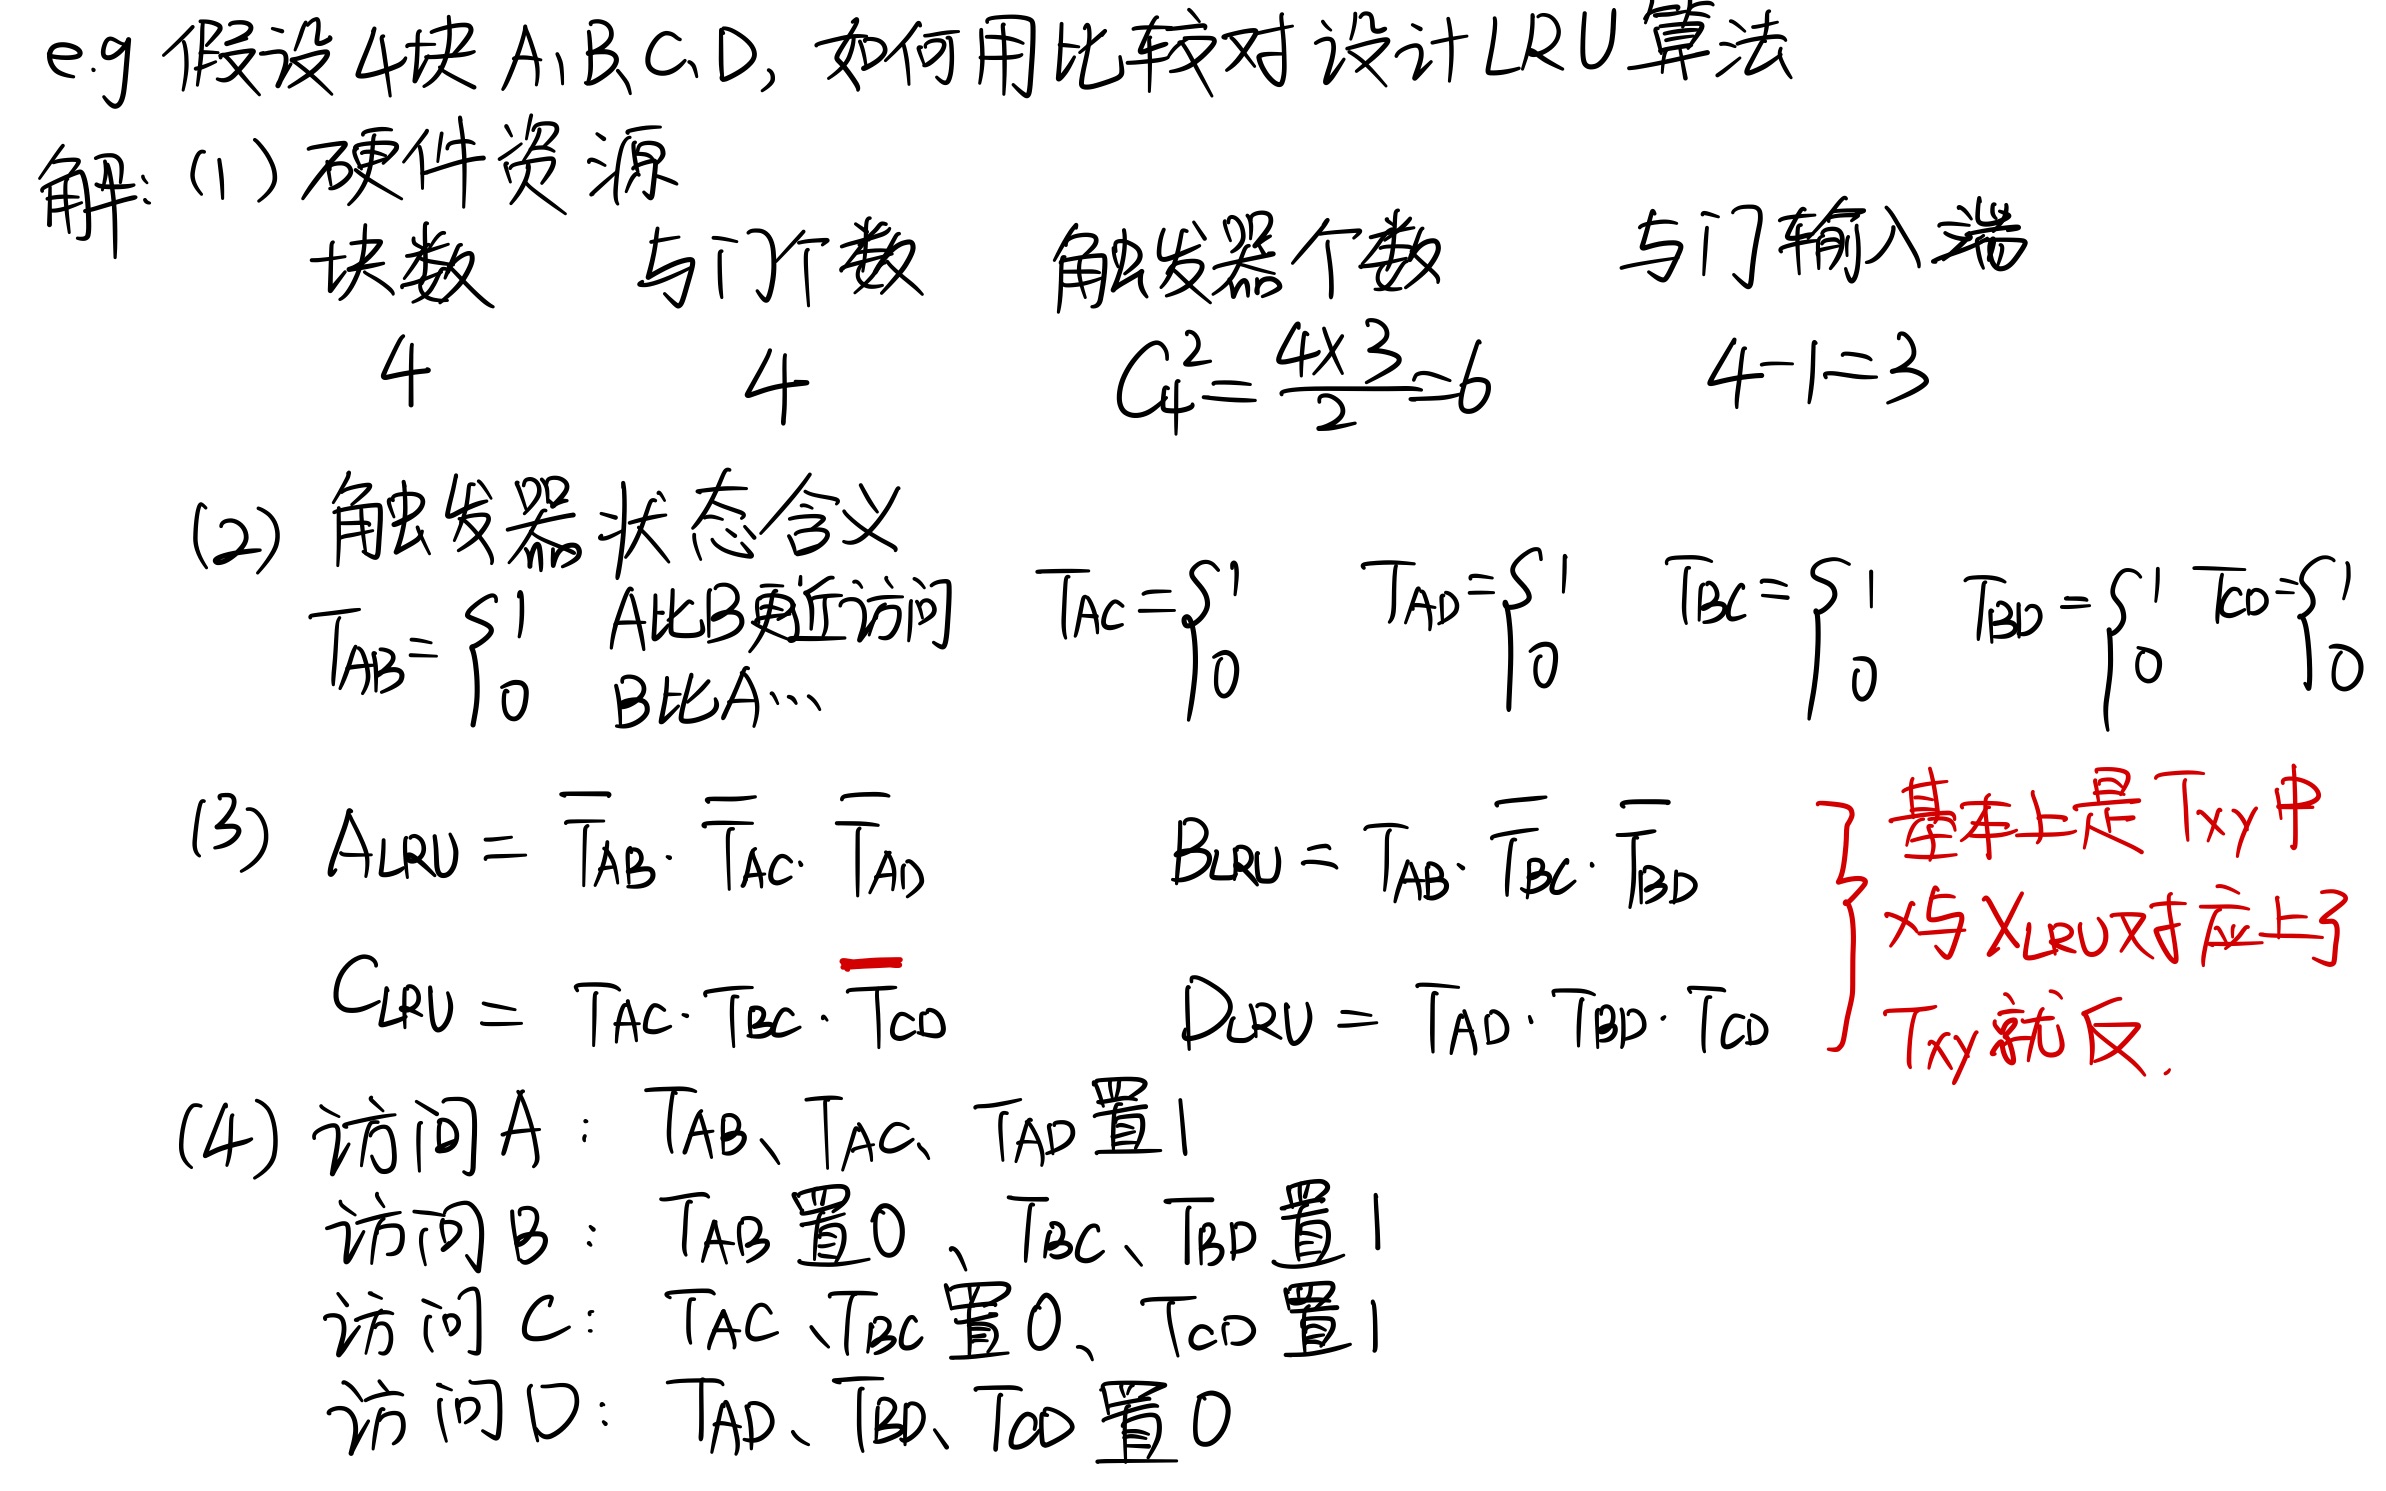 e.g 假设4块A、B、C、D，如何用比较对设计LRU算法
解：(1) 硬件资源
块数 与门个数 触发器个数 与门输入端
4 4 C₄² = 4×3/2 = 6 4-1=3
(2) 触发器状态含义
T_AB = { 1 A比B更近访问 T_AC = { 1 T_AD = { 1 T_BC = { 1 T_BD = { 1 T_CD = { 1
0 B比A… 0 0 0 0 0
(3) A_LRU = T̅_AB · T̅_AC · T̅_AD B_LRU = T_AB · T̅_BC · T̅_BD
C_LRU = T_AC · T_BC · T̅_CD D_LRU = T_AD · T_BD · T_CD
基本上是 Txy中
x与X_LRU对应上了
Txy就反.
(4) 访问A： T_AB、T_AC、T_AD置1
访问B： T_AB置0、T_BC、T_BD置1
访问C： T_AC、T_BC置0、T_CD置1
访问D： T_AD、T_BD、T_CD置0